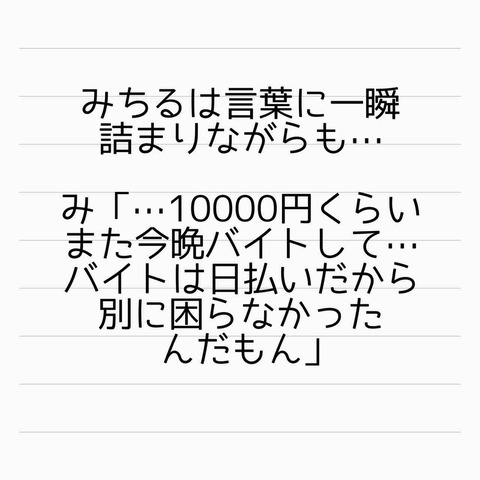 みちるは言葉に一瞬
詰まりながらも…
み「…10000円くらい
また今晩バイトして…
バイトは日払いだから
別に困らなかった
んだもん」